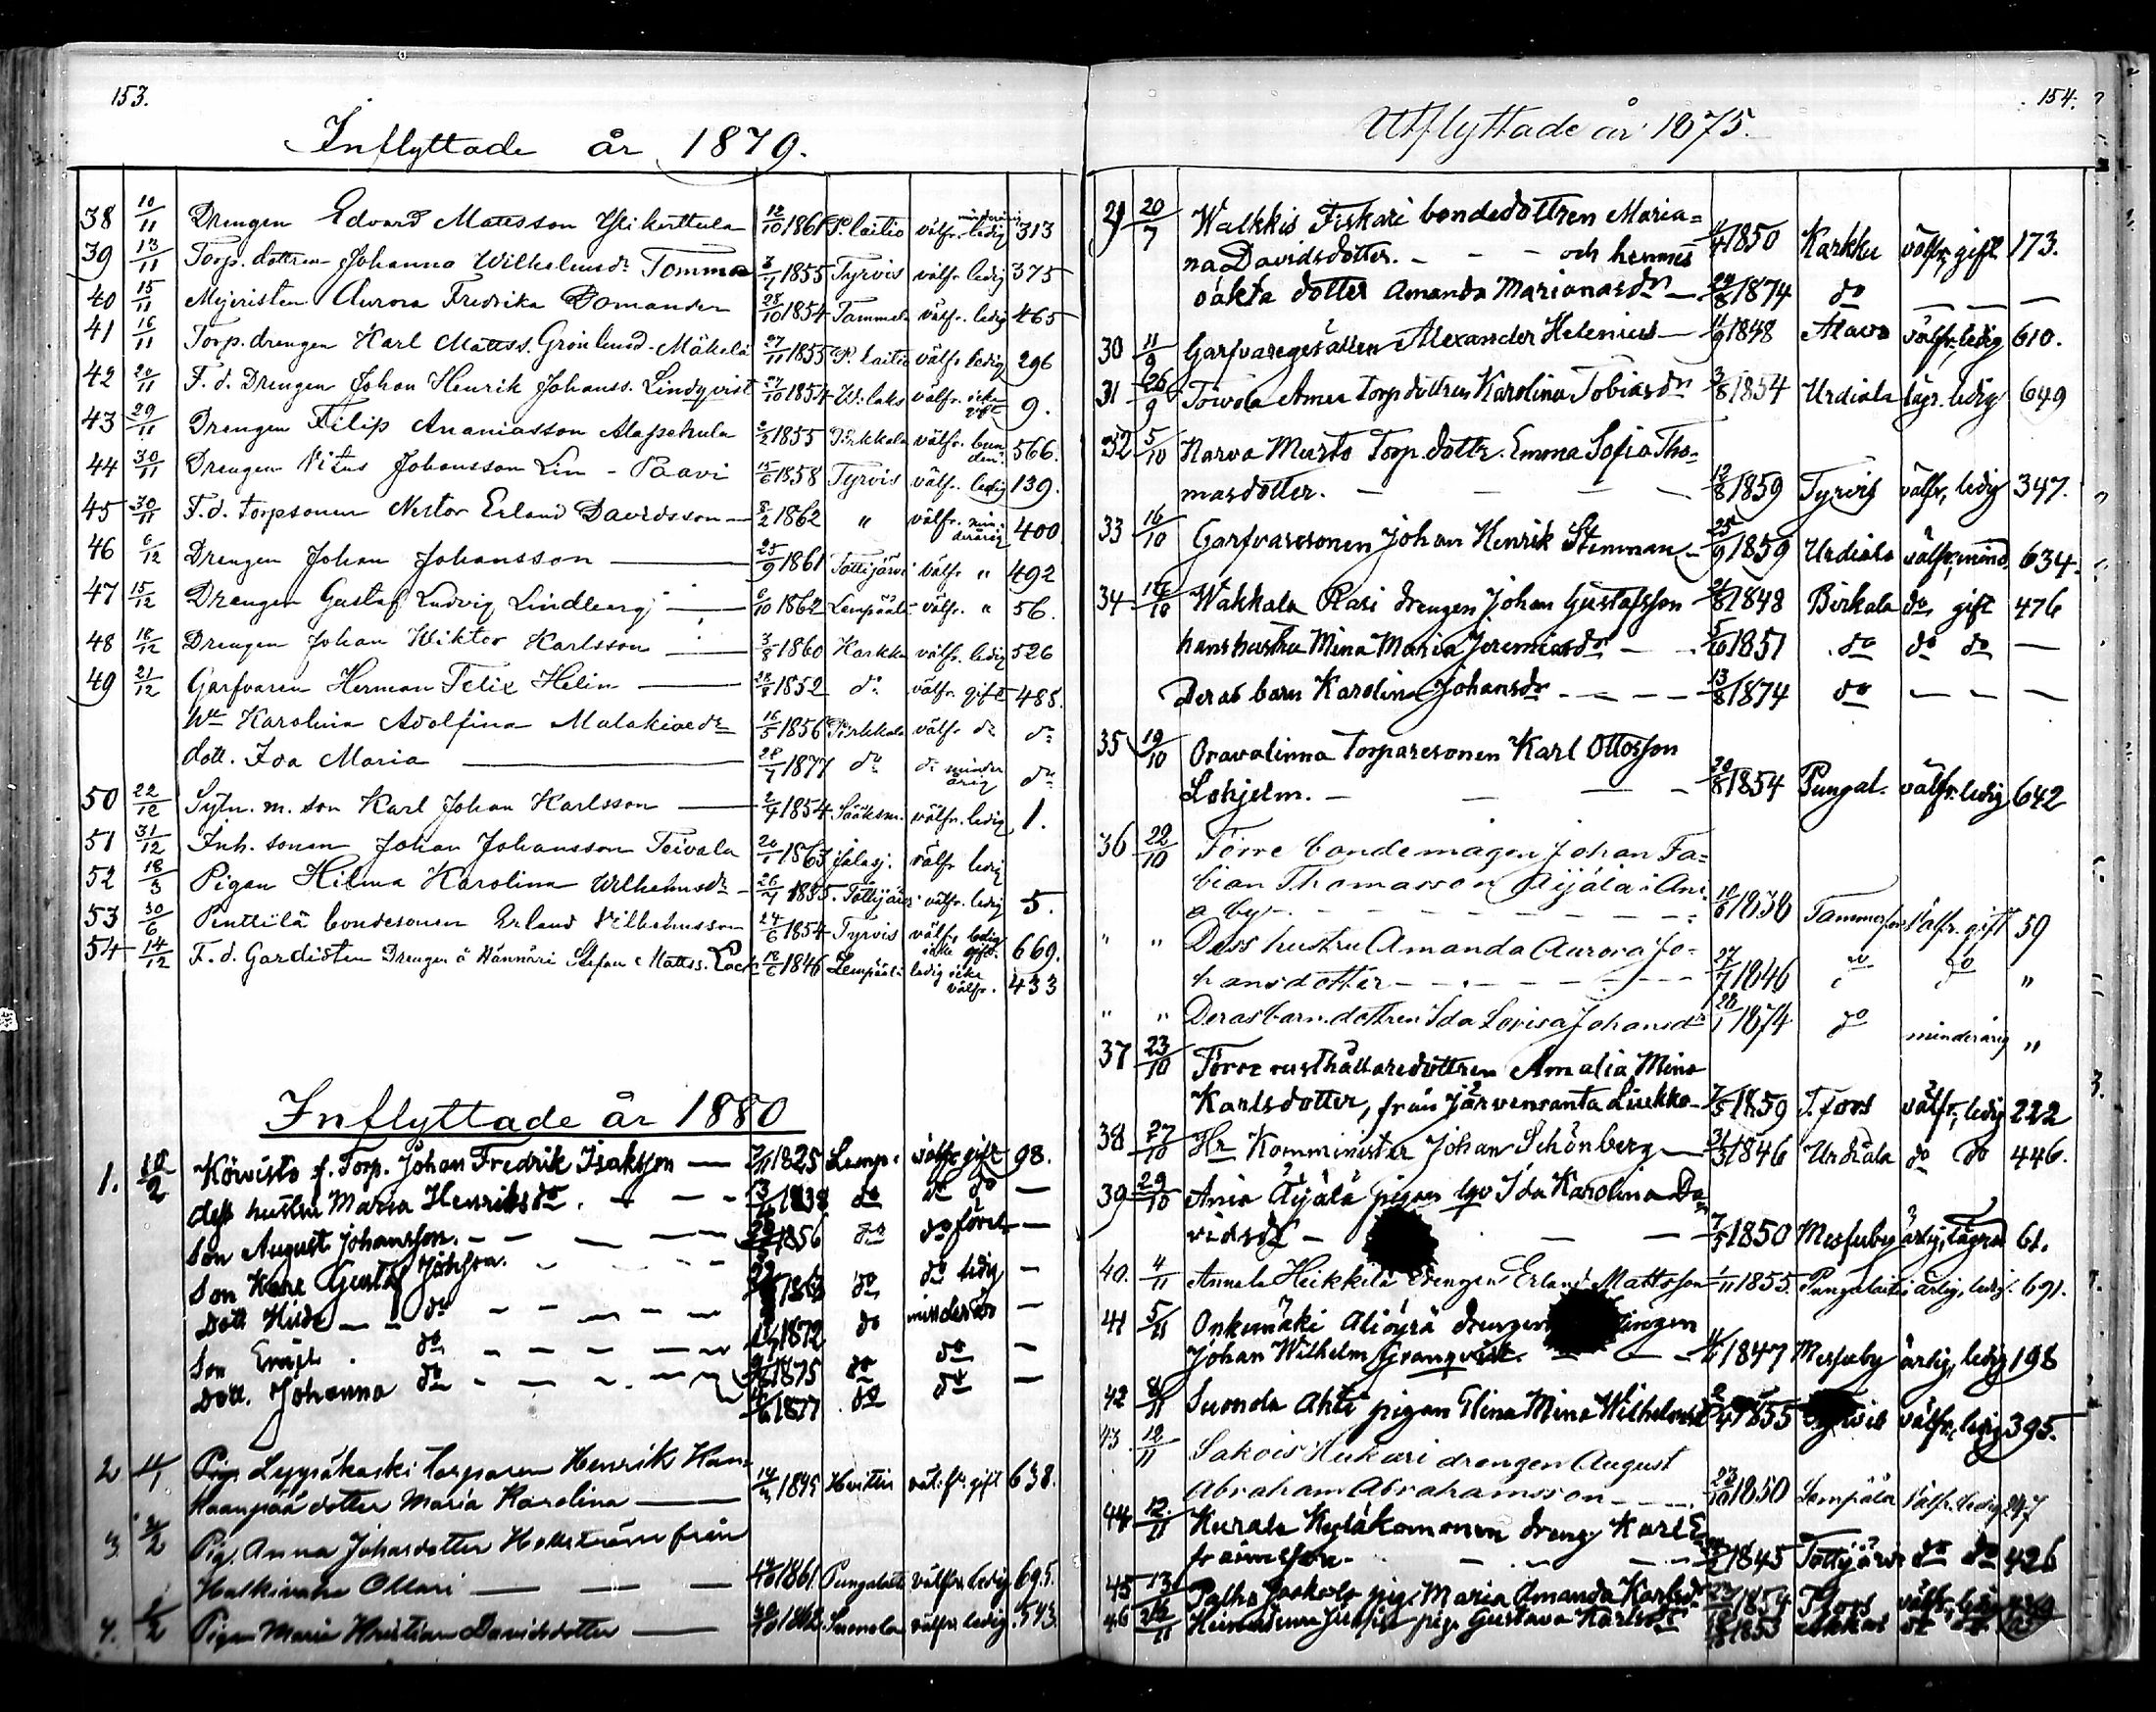 153.
Inflyttade år 1879.
38 10/11 Drengen Edvard Mattsson Yli kerttula 12/10 1861 P. laitio välfr. ledig 313
39 13/11 Torp. dottren Johanna Wilhelmsdr Tomma 3/1 1855 Tyrvis välfr. ledig 375
40 15/11 Mejeristen Aurora Fredrika Domander 28/10 1854 Tammela välfr. ledig 465
41 16/11 Torp. drengen Karl Mattss. Grönlund-Mäkelä 27/11 1855 P. laitio välfr. ledig 296
42 20/11 F. d. Drengen Johan Henrik Johanss. Lindqvist 27/10 1854 välfr. icke gift 9.
43 29/11 Drengen Filip Ananiasson 2/2 1855 Pirkkala välfr. bunden 566.
44 30/11 Drengen Vitus Johansson Lin - Paavi 15/6 1858 Tyrvis välfr. ledig 139.
45 30/11 F. d. torpsonen Nestor Erland Davidsson 8/2 1862 " välfr. minderårig 400
46 6/12 Drengen Johan Johansson 25/9 1861 Tottijärvi välfr " 492
47 15/12 Drengen Gustaf Ludvig Lindberg 6/10 1862 Lempäälä välfr. " 56.
48 18/12 Drengen Johan Wiktor Karlsson 3/8 1860 Karkku välfr. ledig 526
49 21/12 Garfvaren Herman Felix Helin 28/8 1852 do välfr. gift 485.
Karolina Adolfina Malakiaedr 16/5 1856 Pirkkala välfr do do
dott. Ida Maria 28/7 1877 do do minderårig do
50 22/12 Sytn. m. son Karl Johan Karlsson 2/4 1854 Sääksm. välfr. ledig 1.
51 31/12 Inh. sonen Johan Johansson Teivala 20/1 1863 Jalasj. välfr ledig
52 18/3 Pigan Hilma Karolina Wilhelmsdr 26/4 1855. Tottijärvi välfr. ledig 5.
53 30/6 Penttilä bondesonen Erland Vilhelmsson 24/6 1854 Tyrvis välfr. ledig icke gift. 669.
54 14/12 F. d. Gardisten Drengen å Hännäri Stefan Mattss. Lack 18/6 1846 Lempäälä ledig icke välfr. 433
Inflyttade år 1880
1. 10/2 Köwistö f. Torp. Johan Fredrik Isaksson 1825 Lemp. välfr gift 98.
dess hustru Maria Henriksdr 1838 do do do
Son August Johansson. 1856 do do
Son Karl Gustaf do do ledig
Dott Hilda do 1872 do minderår
Son do 1875 do do
Dott. Johanna do 1877 do do
2 Leppäkoski torparen Henrik
Kaanpää dotter Maria Karolina 1845 Huittis gift 638.
3. 2/2 Pig. Anna Johansdotter Hellström från
Halkivaha Ollari 1861 Pungalaiti välfr. ledig 695.
4. 2/2 Pigan Maria Kristina Davidsdotter 1862. Suoniala välfr ledig. 543
154.
Utflyttade år 1875.
29 20/7 Walkkis Fiskari bondedottren Maria=
na Davidsdotter. och hennes 1850 Karkku välfr, gift 173.
oäkta dotter Amanda Marianasdr 1874 do
30 11/9 Garfvaregesällen Alexander Helenius 1848 Alavo välfr, ledig 610.
31 26/9 Towola Torp dottren Karolina Tobiasdr 3/8 1854 Urdiala lägr. ledig 649
32 5/10 Narva Mursto Torp. dottr. Emma Sofia Tho-
masdotter. 12/8 1859 Tyrvis välfr, ledig 347.
33 16/10 Garfvaresonen Johan Henrik Stenman 25/9 1859 Urdiala välfr, mind. 634.
34 Wakkala Rasi drengen Johan Gustafsson 1848 Birkala do gift 476
hans hustru Mina Maria Jeremiasdr 1851 do do do
Deras barn Karolina Johansdr 13/8 1874 do
35 19/10 Oravalinna Torparesonen Karl Ottosson
Lohjelm. 20/8 1854 Pungal. välfr. ledig 642
36 22/10 Förre bondemågen Johan Fa=
bian Thomasson Äijälä i Ani
a by 1838 Tammerfors välfr. gift 59
" " Dess hustru Amanda Aurora Jo-
hansdotter 27/7 1846 do do "
" " Deras barn. dottren Ida Lovisa Johansdr 28/1 1874 do minderårig "
37 23/10 Förre rusthållaredottren Amalia Mina
Karlsdotter, från Järvensanta Liukko 7/5 1859 T. fors välfr, ledig 222
38 27/10 Hr Komminister Johan Schönberg 31/3 1846 Urdiala do do 446.
39 29/10 Ania Äijälä pigan Ida Karolina Da-
vidsdr 7/5 1850 Messuby ärlig, lägrad 61.
40. 4/11 Annala Heikkilä drengen Erland Mattsson 1855. Pungalaitio ärlig, ledig. 691.
41 5/11 Onkemäki Alioyrä drengen
Johan Wilhelm Granqvist. 1847 Messuby ärlig, ledig 198
42 8/11 Suonola Ahti pigan Elina Mina Wilhelmsdr 1855 välfr, ledig 395.
43 12/11 Sakois Hukari drengen August
Abraham Abrahamsson 23/10 1850 Lempäälä välfr. ledig
44 12/11 Kurala Kyläkomonen dreng Karl E
fraimsson. 1845 Tottijärvi do do 426
45 13/11 Palho Jaakola pig. Maria Amanda Karlsdr 1854 T. fors välfr, ledig
46 pigan Gustava Karlsdr 1853 do do